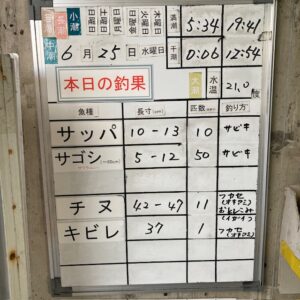 小潮
長潮
若潮
中潮
日曜日
月曜日
火曜日
木曜日
金曜日
土曜日
満潮 5:34 19:41
6月25日 水曜日
干潮 0:06 12:54
本日の釣果
大潮 水温 21.0 度
魚種 長寸(cm) 匹数 釣り方
サッパ 10-13 10 サビキ
サゴシ 5-12 50 サビキ
チヌ 42-47 11 フカセ(オキアミ)
キビレ 37 1 フカセ(オキアミ)